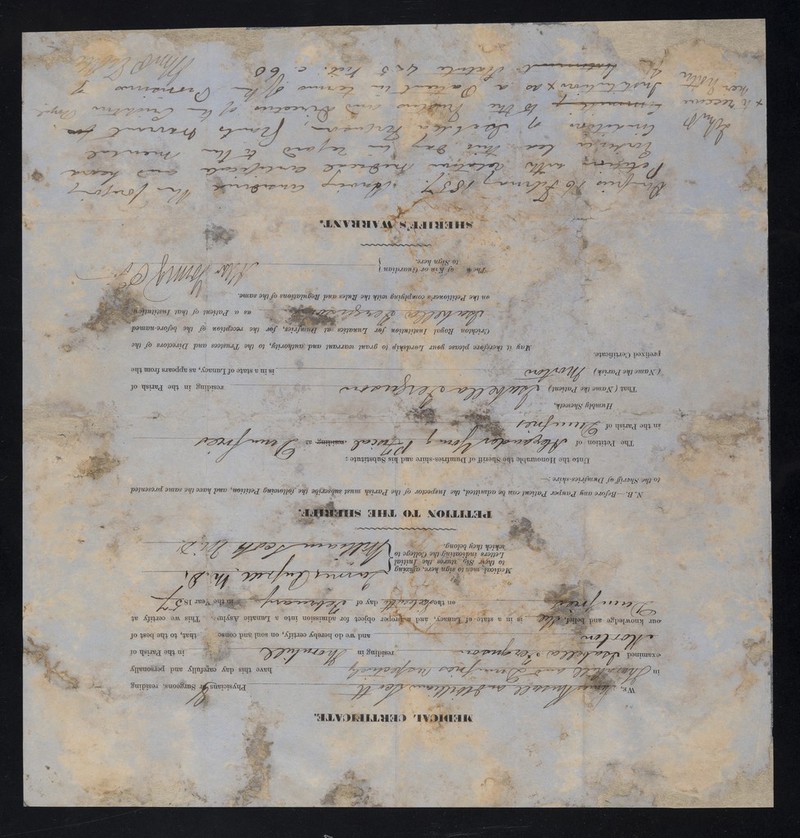 MEDICAL CERTIFICATE.
We, James Russell and William Scott Physicians or Surgeons, residing
in Thornhill and Dumfries respectively have this day carefully and personally
examined Isabella Ferguson residing in Thornhill in the Parish of
Morton and we do hereby certify, on soul and consc that, to the best of
our knowledge and belief, she is in a state of Lunacy, and a proper object for admission into a Lunatic Asylu This we certify at
Dumfries on the Sixteenth day of February in the Year 1857
Medical men to sign here, affixing
to their Sig tures the Initial
Letters indicating the College to
which they belong.
James Russell M.D.
William Scott M.D.
PETITION TO THE SHERIFF.
N.B.—Before any Pauper Patient can be admitted, the Inspector of the Parish must subscribe the following Petition, and have the same presented
to the Sheriff of Dumfries-shire:—
Unto the Honourable the Sheriff of Dumfries-shire and his Substitute:
The Petition of Alexander Young residing at Dumfries
in the Parish of Dumfries
Humbly Sheweth,
That (Name the Patient) Isabella Ferguson residing in the Parish of
(Name the Parish) Morton is in a state of Lunacy, as appears from the
prefixed Certificate.
May it therefore please your Lordship to grant warrant and authority, to the Trustees and Directors of the
Crichton Royal Institution for Lunatics at Dumfries, for the reception of the before-named
Isabella Ferguson as a Patient of that Institution
on the Petitioner's complying with the Rules and Regulations of the same.
The of Kin or Guardian
to Sign here.
Alexr Young
SHERIFF'S WARRANT.
Dumfries 16 February 1857. Having considered the foregoing
Petition with relative medical certificate and heard
evidence led this day in regard to the mental
condition of Isabella Ferguson Grants Warrant for
to the Trustees and Directors of the Crichton Royal
Institution as a Patient in terms of the Provisions of
Statute 4 & 5 Vict: c 60
to receive
her into